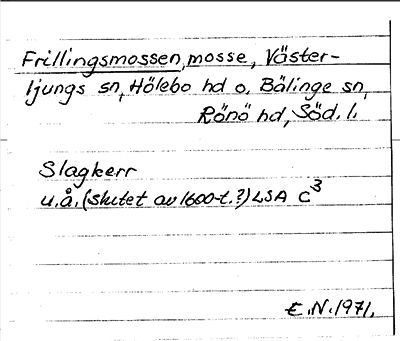 Frillingsmossen, mosse, Väster-
ljungs sn, Hölebo hd o. Bälinge sn,
Rönö hd, Söd. l.
Slagkerr
u.å. (slutet av 1600-t.?) LSA C³
E.N. 1971.